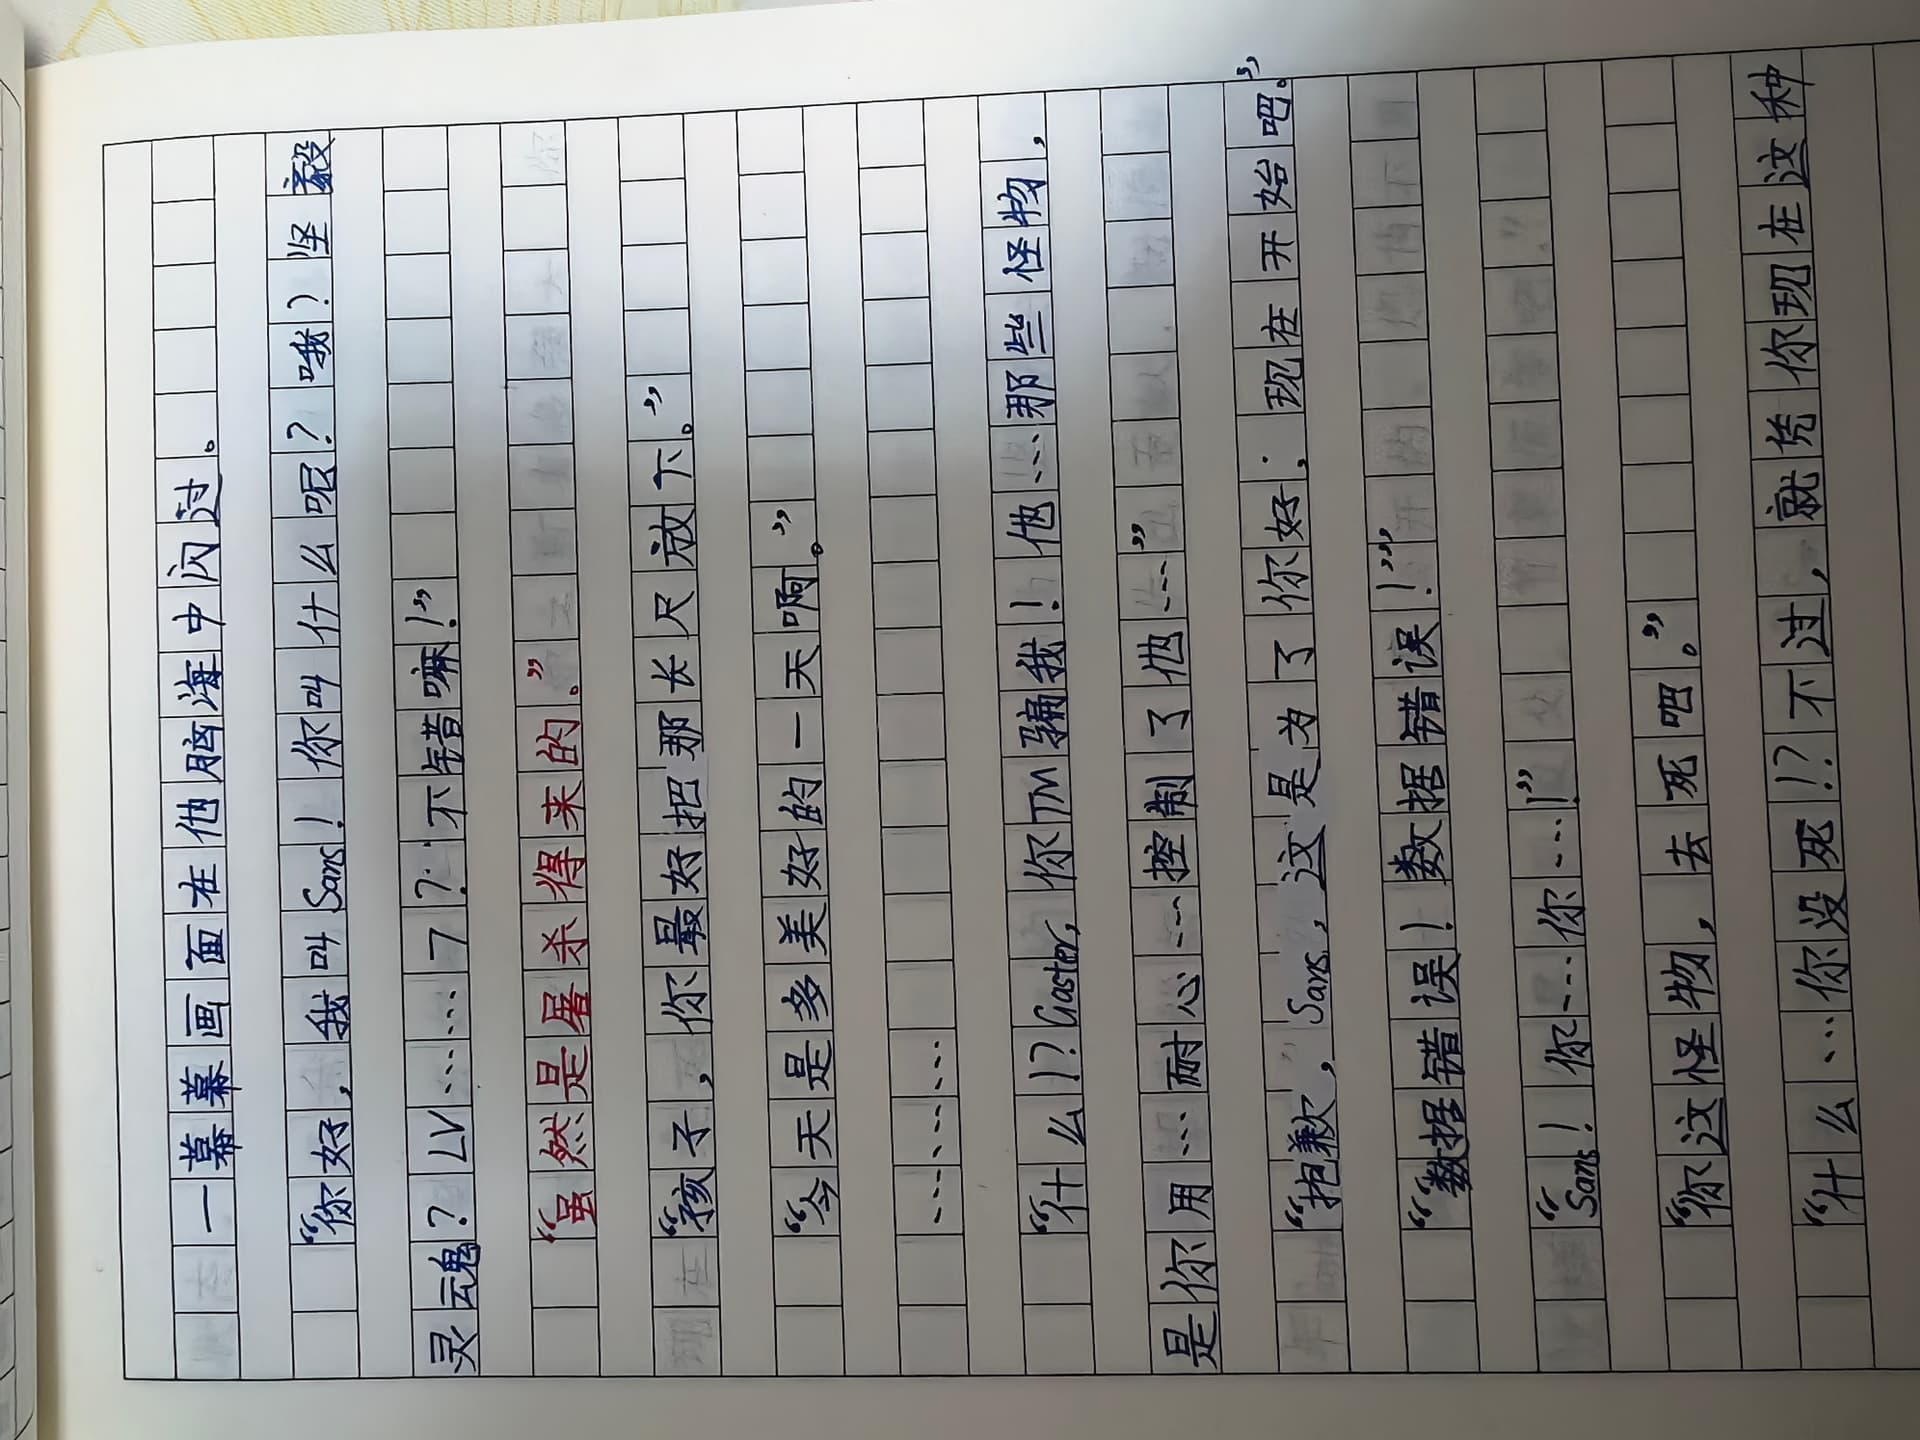 一幕幕画面在他脑海中闪过。
“你好，我叫Sans！你叫什么呢？哦？怪毅
灵魂？LV……7？不错嘛！”
“虽然是屠杀得来的。”
“孩子，你最好把那长尺放下。”
“今天是多美好的一天啊。”
…………
“什么！？Gaster，你TM骗我！他…那些怪物，
是你用…耐心…控制了他…”
“抱歉，Sans，这是为了你好；现在开始吧。”
““数据错误！数据错误！””
“Sans！你…你…！”
“你这怪物，去死吧。”
“什么…你没死！？不过，就凭你现在这种